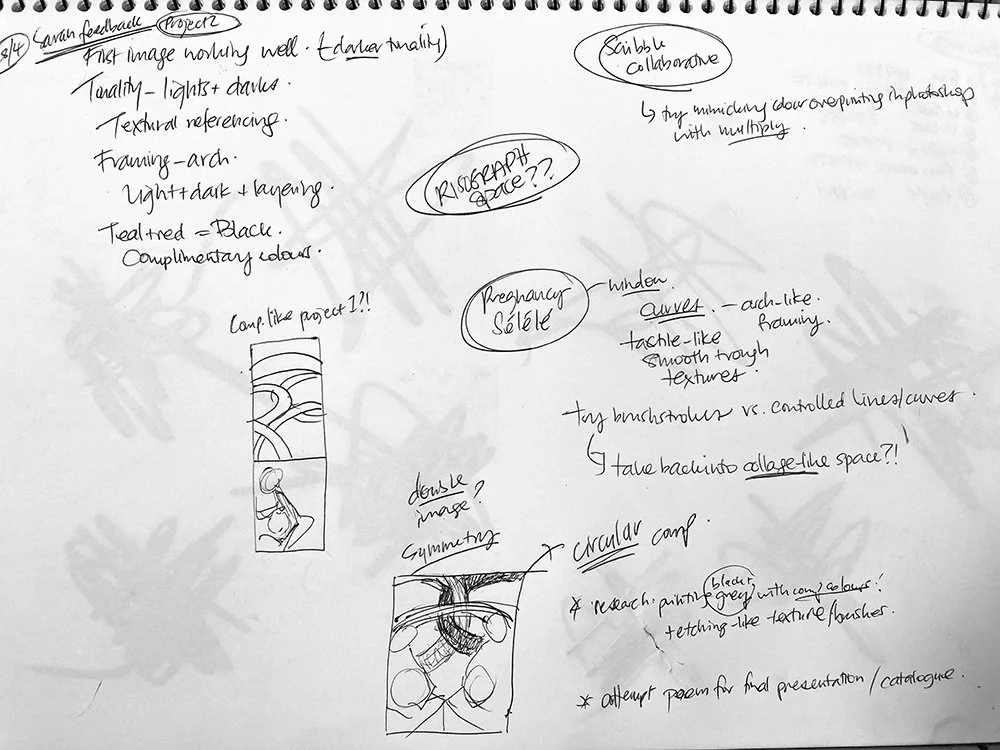 8/4 Sarah feedback Project 2
First image working well. (darker tonality)
Tonality - lights + darks.
Textural referencing.
Framing - arch.
Light + dark + layering.
Teal + red = Black.
Complimentary colours.
Comp. like project 1?!
Scribble
collaborative
↳ try mimicking colour overprinting in photoshop
with multiply.
RISOGRAPH
space??
Pregnancy
Sélélé
window.
curves. - arch-like
framing.
tactile-like
smooth + rough
textures.
try brushstrokes vs. controlled lines/curves.
↳ take back into collage-like space?!
double
image?
Symmetry
circular comp.
* research: printing black + grey with comp. colours!
+ etching-like texture/brushes.
* attempt poem for final presentation / catalogue.